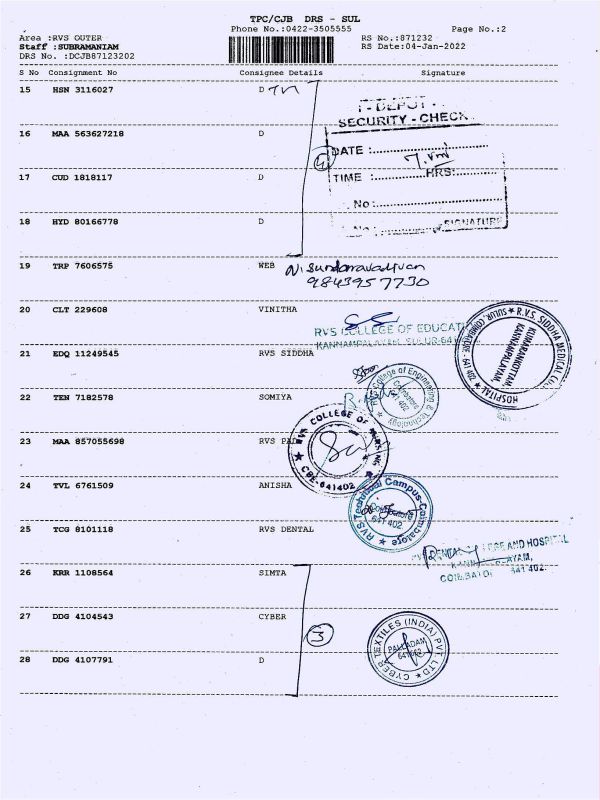 TPC/CJB DRS - SUL
Phone No.:0422-3505555 Page No.:2
Area :RVS OUTER RS No.:871232
Staff :SUBRAMANIAM RS Date:04-Jan-2022
DRS No. :DCJB87123202
S No Consignment No Consignee Details Signature
15 HSN 3116027 D
SECURITY - CHECK
16 MAA 563627218 D
DATE :
4
17 CUD 1818117 D
TIME : HRS:
No :
18 HYD 80166778 D
SIGNATURE
19 TRP 7606575 WEB
9843957730
20 CLT 229608 VINITHA
RVS COLLEGE OF EDUCATI
KANNAMPALAYAM, SULUR-641
R.V.S. SIDDHA MEDICAL
HOSPITAL
KUMARANKOTTAM,
KANNAMPALAYAM,
21 EDQ 11249545 RVS SIDDHA
22 TEN 7182578 SOMIYA
RVS College of Engineering & Technology
Coimbatore
641 402
23 MAA 857055698 RVS
RVS COLLEGE OF NURSING
CBE-641402
24 TVL 6761509 ANISHA
RVS Technical Campus-Coimbatore
Coimbatore
641 402
25 TCG 8101118 RVS DENTAL
DENTAL AND HOSPITAL
641 402.
26 KRR 1108564 SIMTA
27 DDG 4104543 CYBER
3
CYBER TEXTILES (INDIA) PVT. LTD
PALLADAM
28 DDG 4107791 D